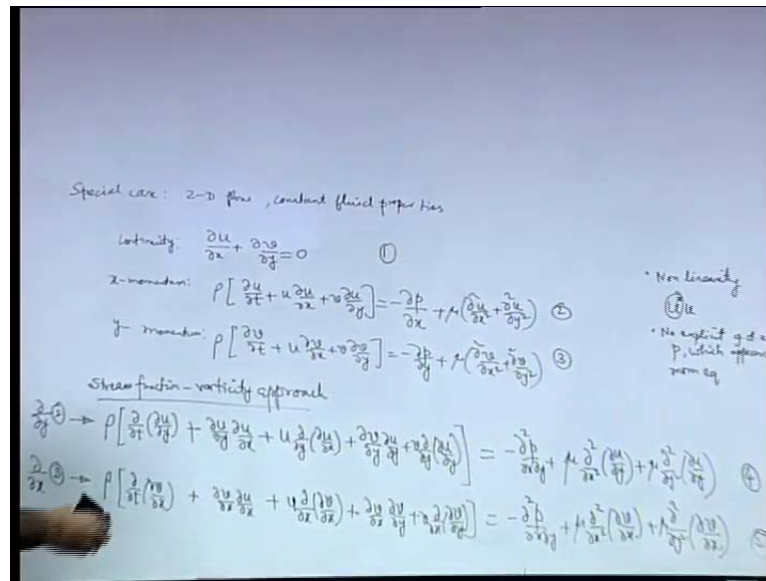 Special case: 2-D flow, constant fluid properties
Continuity: ∂u/∂x + ∂v/∂y = 0 ①
x-momentum: ρ[∂u/∂t + u ∂u/∂x + v ∂u/∂y] = -∂p/∂x + μ(∂²u/∂x² + ∂²u/∂y²) ②
y-momentum: ρ[∂v/∂t + u ∂v/∂x + v ∂v/∂y] = -∂p/∂y + μ(∂²v/∂x² + ∂²v/∂y²) ③
• Non linearity
• No explicit
p, which
mom eq
Stream function-vorticity approach
∂/∂y ② → ρ[∂/∂t(∂u/∂y) + ∂u/∂y ∂u/∂x + u ∂/∂y(∂u/∂x) + ∂v/∂y ∂u/∂y + v ∂/∂y(∂u/∂y)] = -∂²p/∂x∂y + μ ∂²/∂x²(∂u/∂y) + μ ∂²/∂y²(∂u/∂y) ④
∂/∂x ③ → ρ[∂/∂t(∂v/∂x) + ∂v/∂x ∂u/∂x + u ∂/∂x(∂v/∂x) + ∂v/∂x ∂v/∂y + v ∂/∂x(∂v/∂y)] = -∂²p/∂x∂y + μ ∂²/∂x²(∂v/∂x) + μ ∂²/∂y²(∂v/∂x)